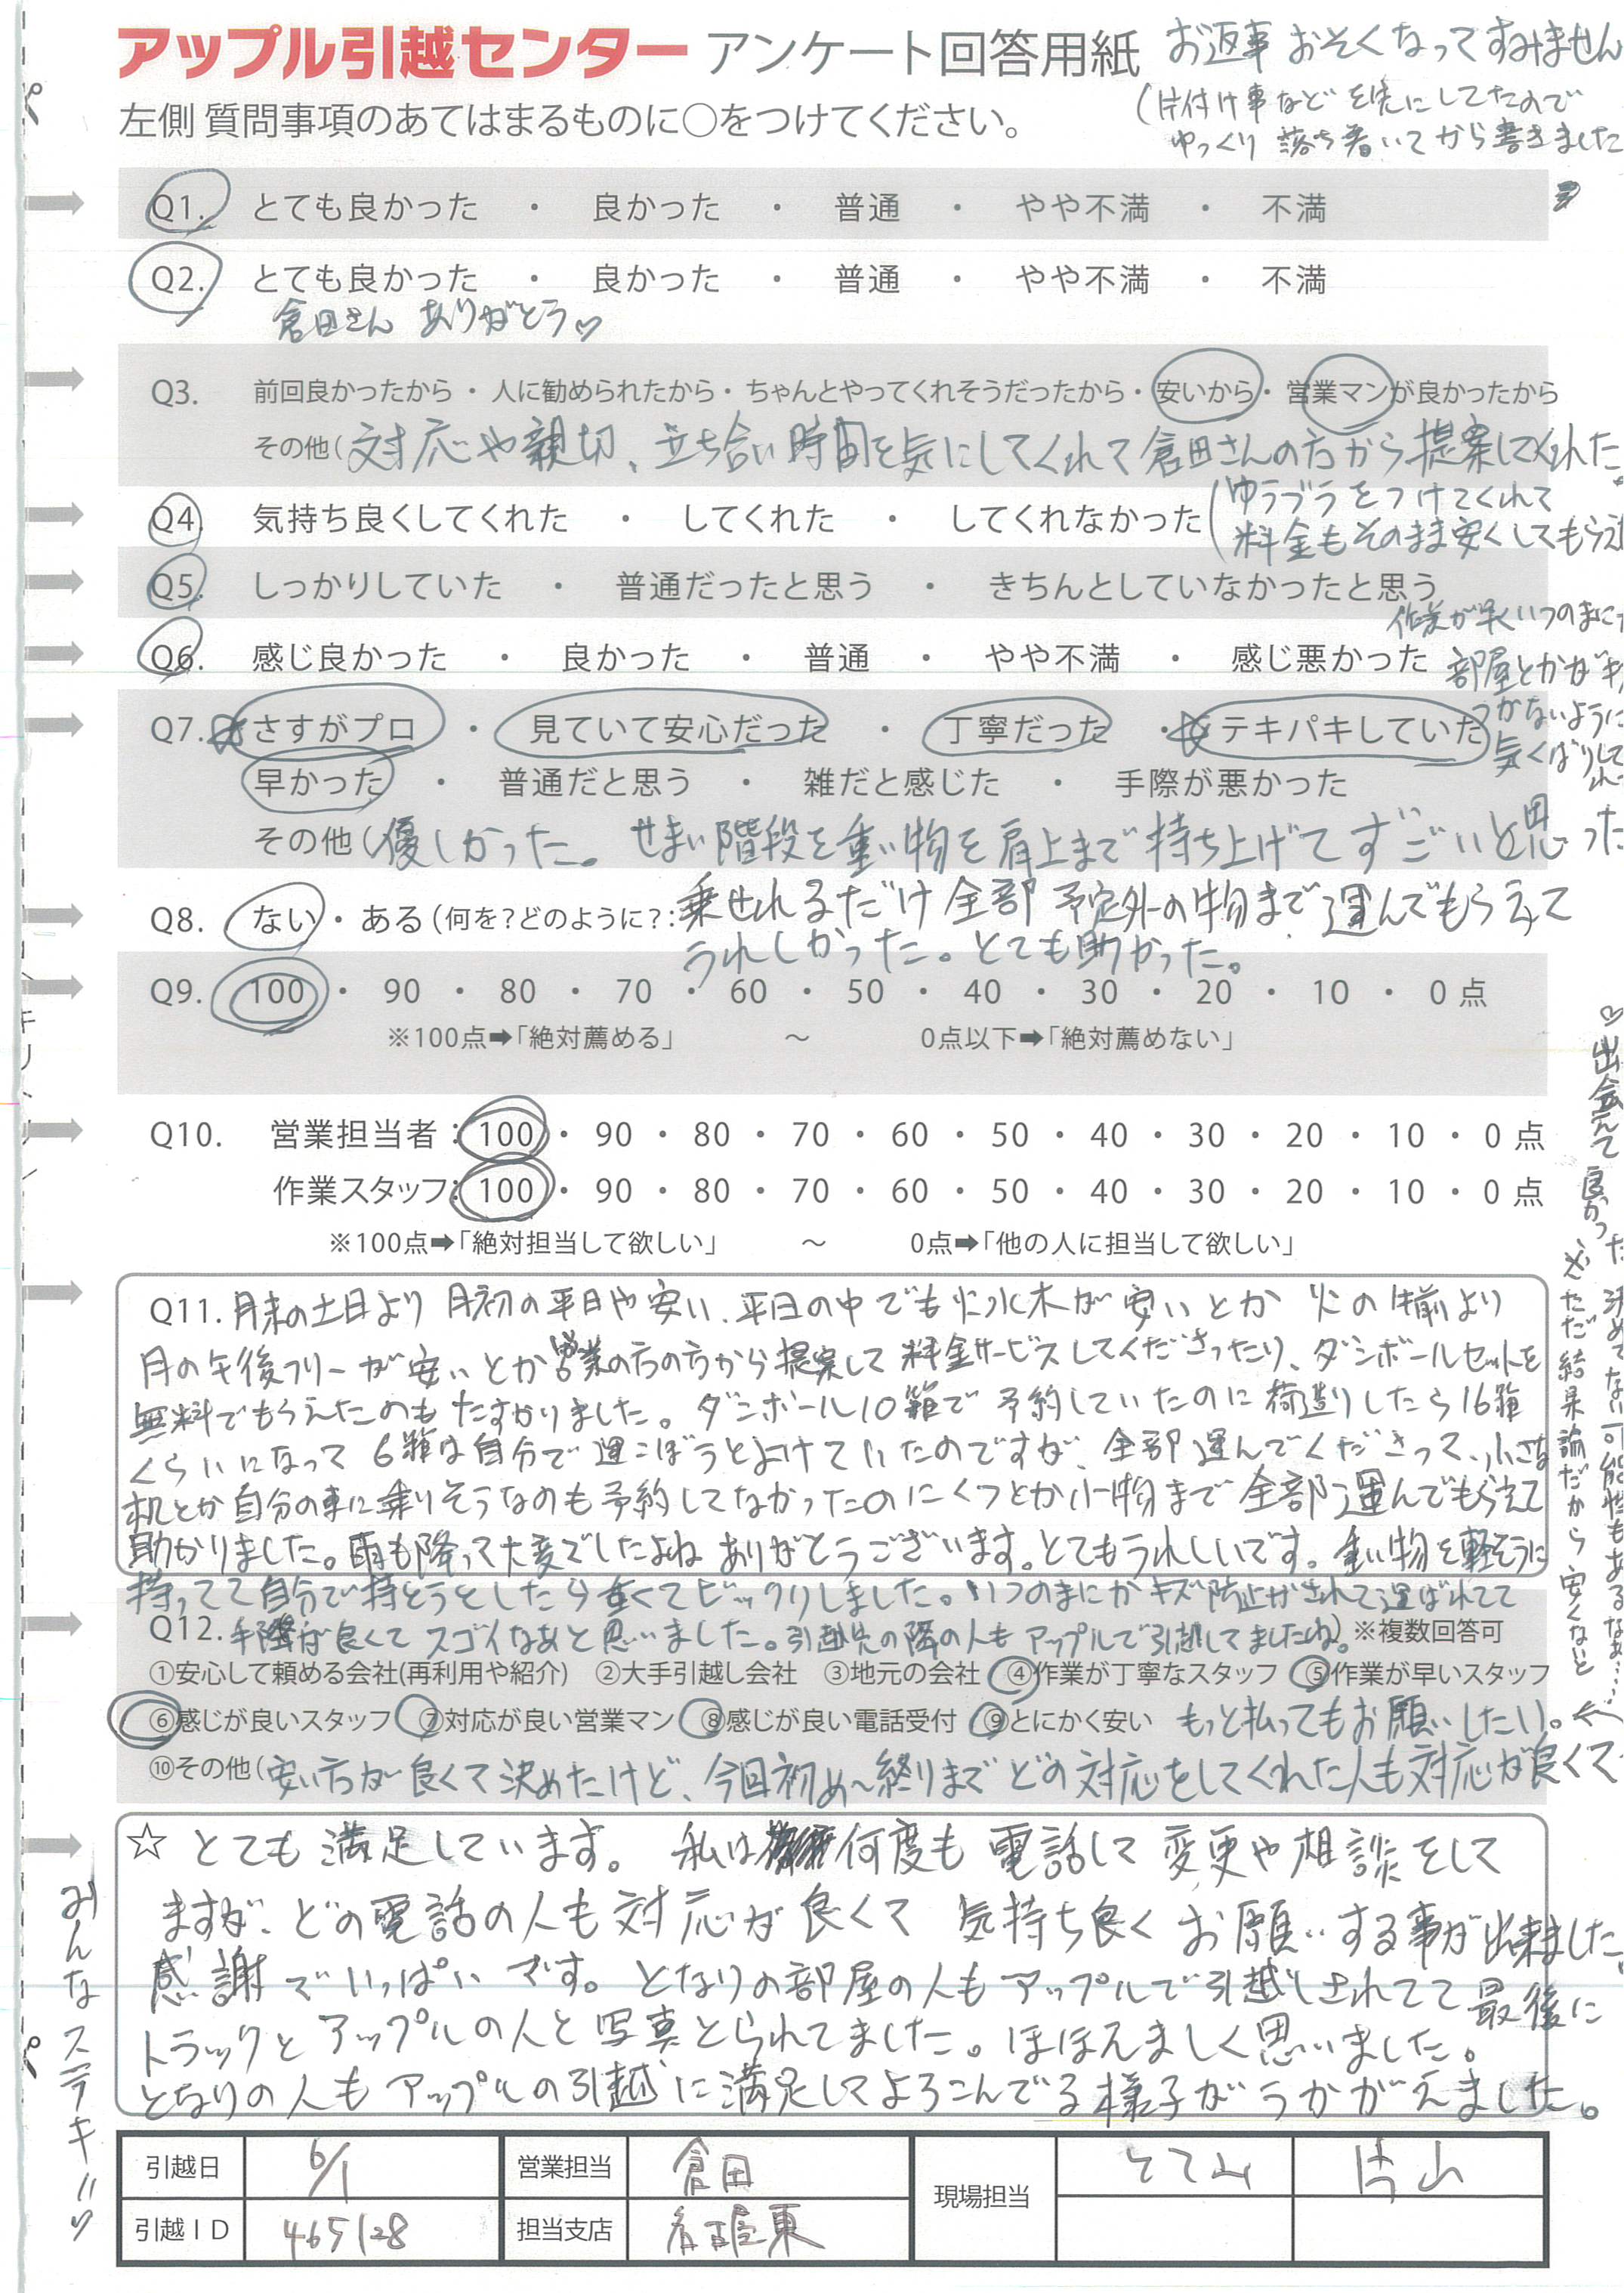 アップル引越センター アンケート回答用紙
お返事 おそくなってすみません
(片付け事などを先にしてたので
ゆっくり 落ち着いてから書きました
左側 質問事項のあてはまるものに○をつけてください。
Q1. とても良かった ・ 良かった ・ 普通 ・ やや不満 ・ 不満
Q2. とても良かった ・ 良かった ・ 普通 ・ やや不満 ・ 不満
倉田さん ありがとう♡
Q3. 前回良かったから ・ 人に勧められたから ・ ちゃんとやってくれそうだったから ・ 安いから ・ 営業マンが良かったから
その他(対応や親切、立ち合い時間を気にしてくれて倉田さんの方から提案してくれた。
Q4. 気持ち良くしてくれた ・ してくれた ・ してくれなかった
(ゆうづうをつけてくれて
料金もそのまま安くしてもらえ
Q5. しっかりしていた ・ 普通だったと思う ・ きちんとしていなかったと思う
作業が早くいつのまにか
Q6. 感じ良かった ・ 良かった ・ 普通 ・ やや不満 ・ 感じ悪かった
部屋とかがキ
つかないように
気くばりして
Q7. ☆さすがプロ ・ 見ていて安心だった ・ 丁寧だった ・ ☆テキパキしていた
早かった ・ 普通だと思う ・ 雑だと感じた ・ 手際が悪かった
その他(優しかった。せまい階段を重い物を肩上まで持ち上げてすごいと思った
Q8. ない ・ ある (何を?どのように?:乗せれるだけ全部 予定外の物まで運んでもらえて
うれしかった。とても助かった。
Q9. 100 ・ 90 ・ 80 ・ 70 ・ 60 ・ 50 ・ 40 ・ 30 ・ 20 ・ 10 ・ 0 点
※100点➡「絶対薦める」 ～ 0点以下➡「絶対薦めない」
Q10. 営業担当者:100 ・ 90 ・ 80 ・ 70 ・ 60 ・ 50 ・ 40 ・ 30 ・ 20 ・ 10 ・ 0 点
作業スタッフ:100 ・ 90 ・ 80 ・ 70 ・ 60 ・ 50 ・ 40 ・ 30 ・ 20 ・ 10 ・ 0 点
※100点➡「絶対担当して欲しい」 ～ 0点➡「他の人に担当して欲しい」
Q11. 月末の土日より 月初の平日や安い、平日の中でも火水木が安いとか 火の午前より
月の午後フリーが安いとか営業の方の方から提案して料金サービスしてくださったり、ダンボールセットを
無料でもらえたのもたすかりました。ダンボール10箱で予約していたのに荷造りしたら16箱
くらいになって 6箱は自分で運こぼうとよけていたのですが、全部運んでくださって、小さな
机とか自分の車に乗りそうなのも予約してなかったのにくつとか小物まで全部運んでもらえて
助かりました。雨も降って大変でしたよね ありがとうございます。とてもうれしいです。重い物を軽そうに
持ってて自分で持とうとしたら重くてビックリしました。いつのまにかキズ防止がされて運ばれてて
Q12. 手際が良くてスゴイなあと思いました。引越先の隣の人もアップルで引越してましたね。)※複数回答可
①安心して頼める会社(再利用や紹介) ②大手引越し会社 ③地元の会社 ④作業が丁寧なスタッフ ⑤作業が早いスタッフ
⑥感じが良いスタッフ ⑦対応が良い営業マン ⑧感じが良い電話受付 ⑨とにかく安い もっと払ってもお願いしたい。←
⑩その他(安い方が良くて決めたけど、今回初め〜終りまでどの対応をしてくれた人も対応が良くて
♡出会えて良かった
※ただ結果論だから安くないと
決めてない可能性もあるなぁ……
☆ とても満足しています。私は何度も電話して変更や相談をして
ますが、どの電話の人も対応が良くて 気持ち良くお願いする事が出来ました。
感謝でいっぱいです。となりの部屋の人もアップルで引越しされてて最後に
トラックとアップルの人と写真とられてました。ほほえましく思いました。
となりの人もアップルの引越に満足してよろこんでる様子がうかがえました。
みんなステキ!!♡
引越日 6/1 営業担当 倉田 現場担当 とて山 片山
引越ID 465128 担当支店 名古屋東